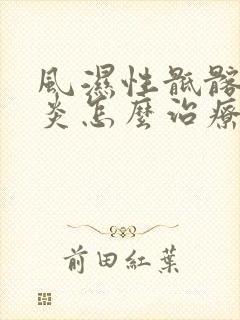 風濕性骶髂
炎怎麼治療
前田紅葉